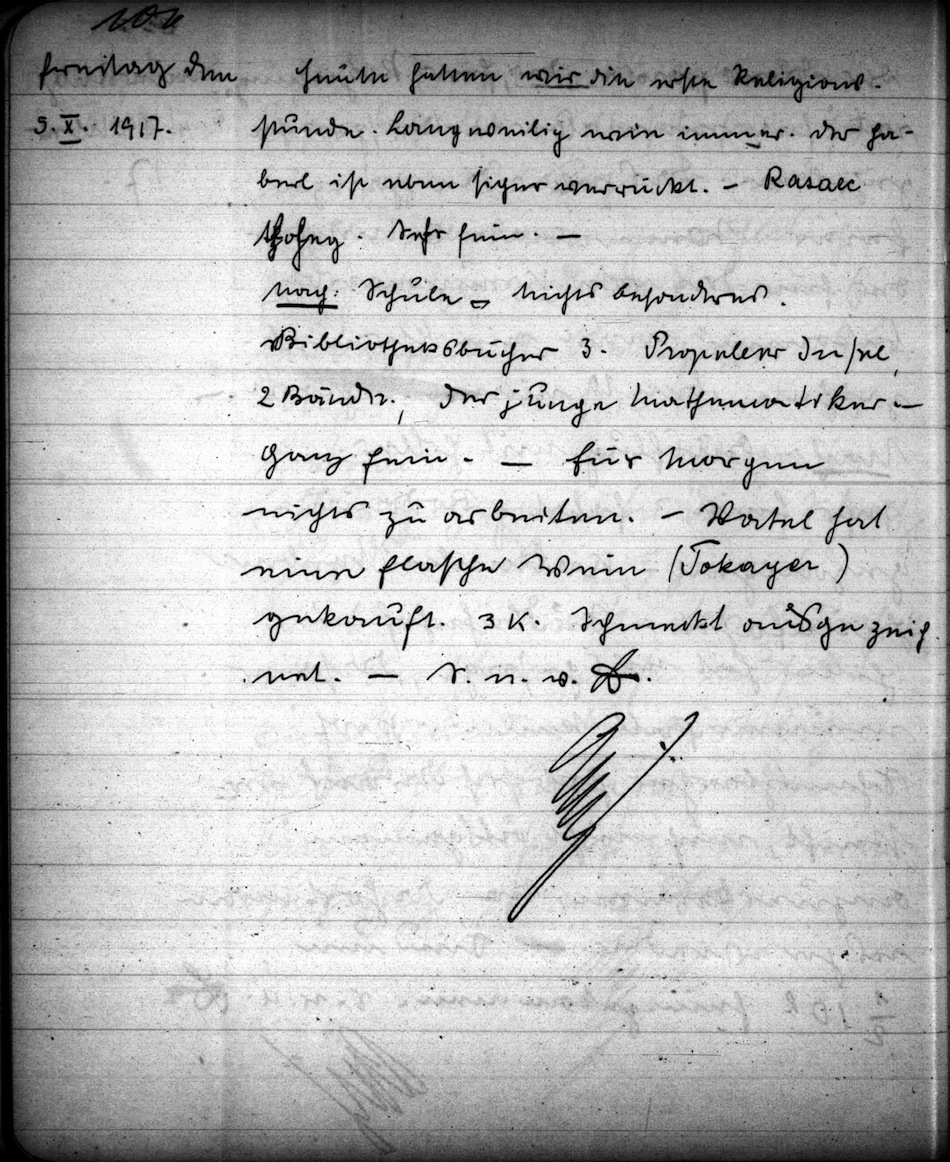 Freitag den heute hatten wir die erste Religions-
5. X. 1917. stunde. Langweilig wie immer. Der Ha-
berl ist eben sicher verrückt. –
Sehr fein. –
Nach: Schule – nichts besonderes.
Bibliotheksbücher 3. Propeller Insel
2 Bände., Der junge Mathematiker –
Ganz fein. – Für Morgen
nichts zu arbeiten. – Vatel hat
eine Flasche Wein (Tokayer)
gekauft. 3 K. Schmeckt ausgezeich
net. – S. u. w.